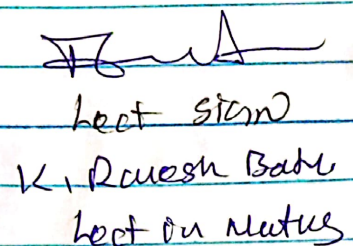 Lect sign
K. Ramesh Babu
Lect in Maths